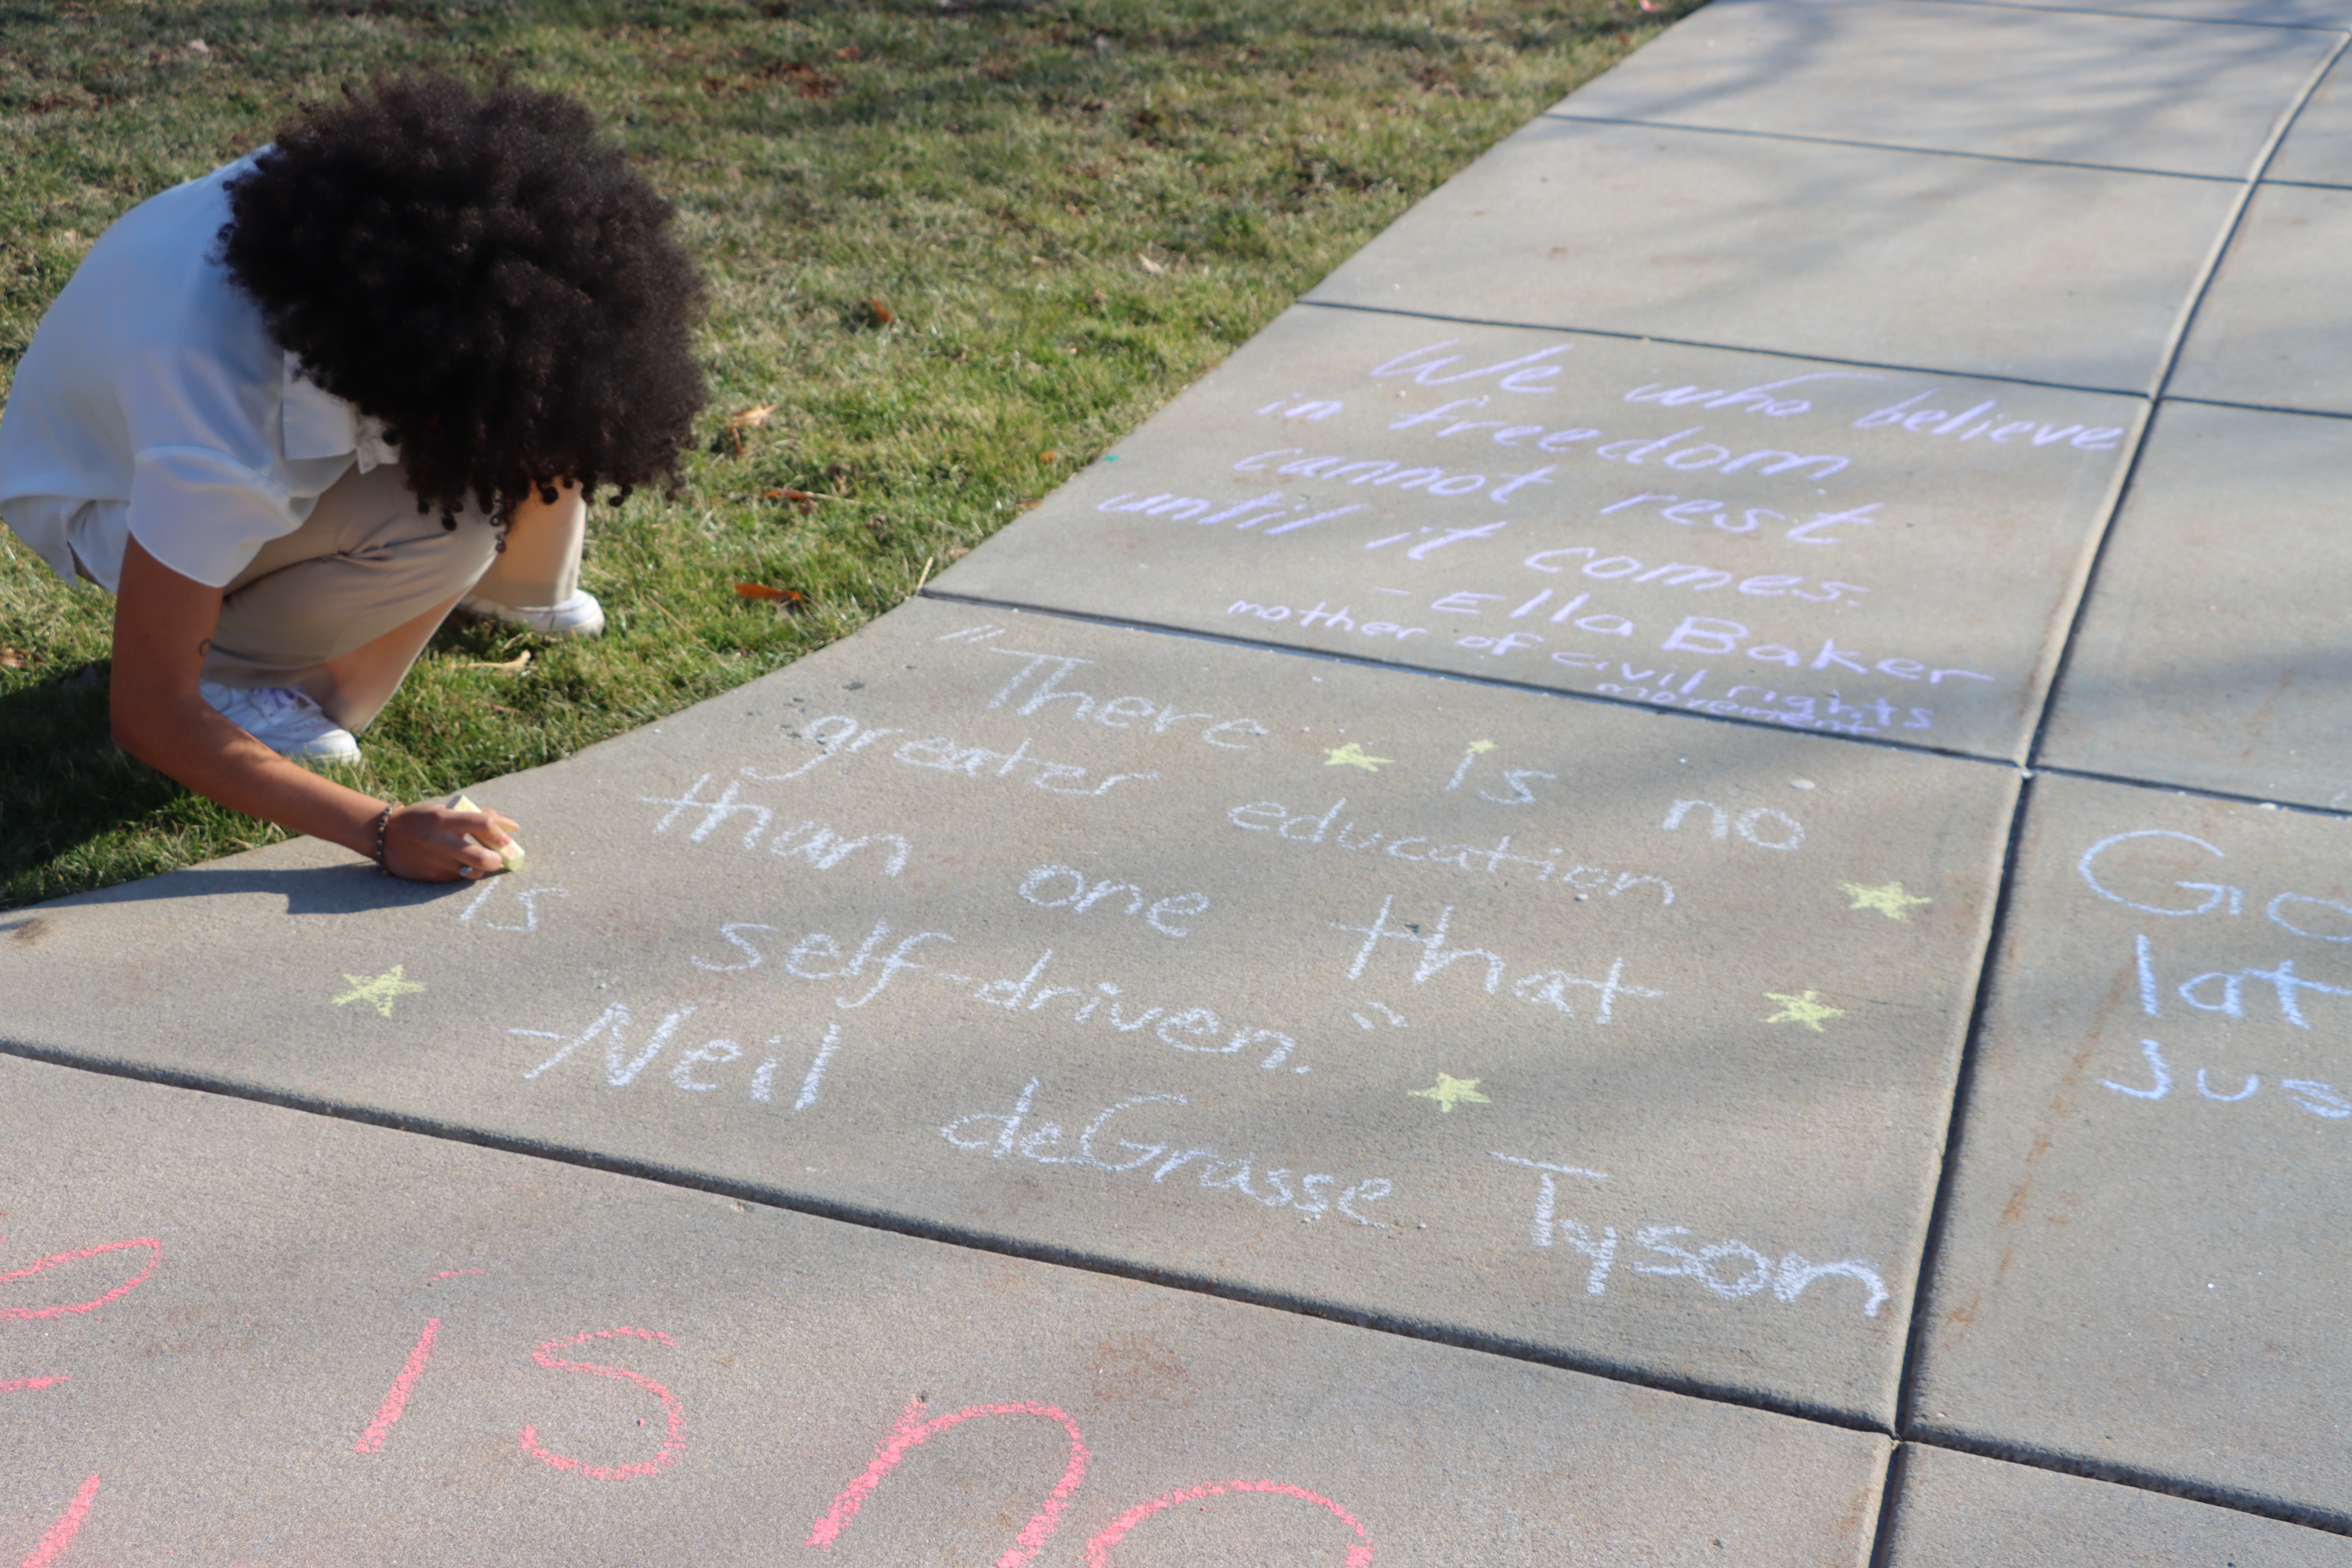 We who believe
in freedom
cannot rest
until it comes.
- Ella Baker
mother of civil rights
movement
"There is no
greater education
than one that
is self-driven."
-Neil deGrasse Tyson
is no